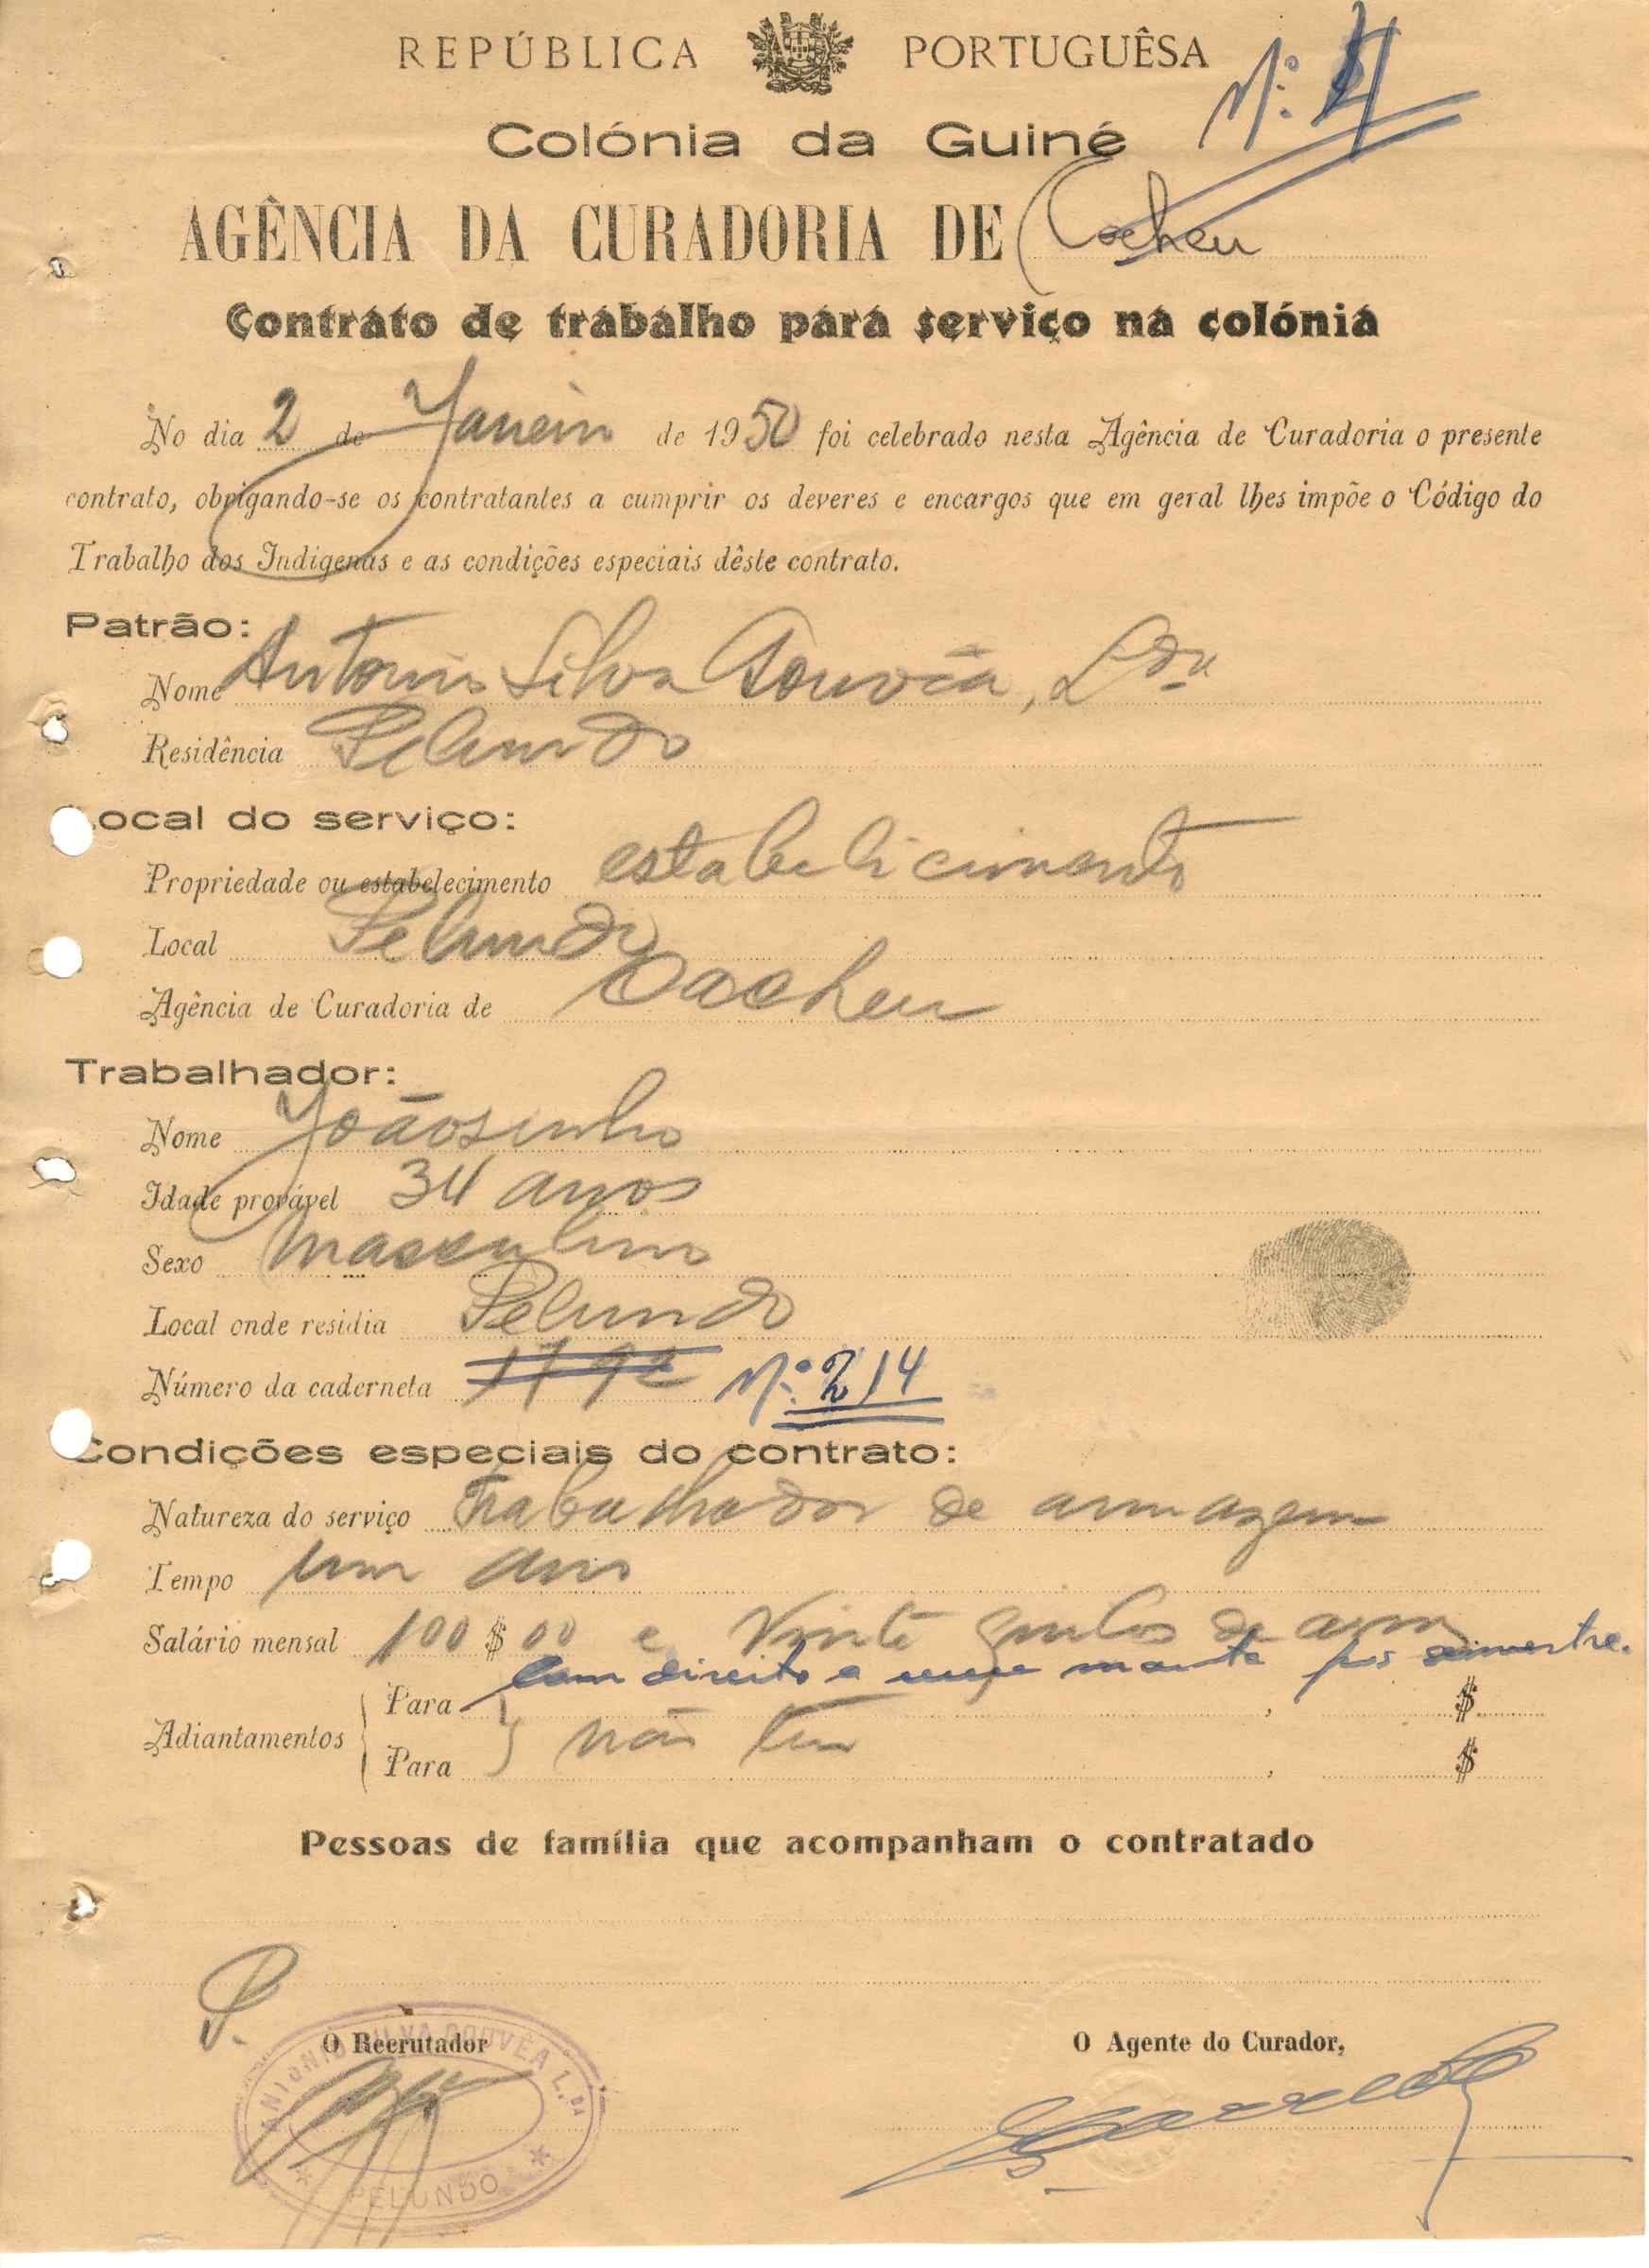 REPÚBLICA PORTUGUÊSA
Nº
Colónia da Guiné
AGÊNCIA DA CURADORIA DE Cacheu
Contrato de trabalho para serviço na colónia
No dia 2 de Janeiro de 1950 foi celebrado nesta Agência de Curadoria o presente
contrato, obrigando-se os contratantes a cumprir os deveres e encargos que em geral lhes impõe o Código do
Trabalho dos Indígenas e as condições especiais dêste contrato.
Patrão:
Nome Antonio Silva Gouvêa, Lda
Residência Pelundo
ocal do serviço:
Propriedade ou estabelecimento estabelicimento
Local Pelundo
Agência de Curadoria de Cacheu
Trabalhador:
Nome Joãosinho
Idade provável 34 anos
Sexo masculino
Local onde residia Pelundo
Número da caderneta 1792 Nº 214
Condições especiais do contrato:
Natureza do serviço Trabalhador de armazem
Tempo um ano
Salário mensal 100$00 e Vinte quilos de arroz
com direito a uma manta por semestre.
Para $
Adiantamentos não tem
Para $
Pessoas de família que acompanham o contratado
P.
O Recrutador
O Agente do Curador,
ANTONIO SILVA GOUVEA L.DA
PELUNDO